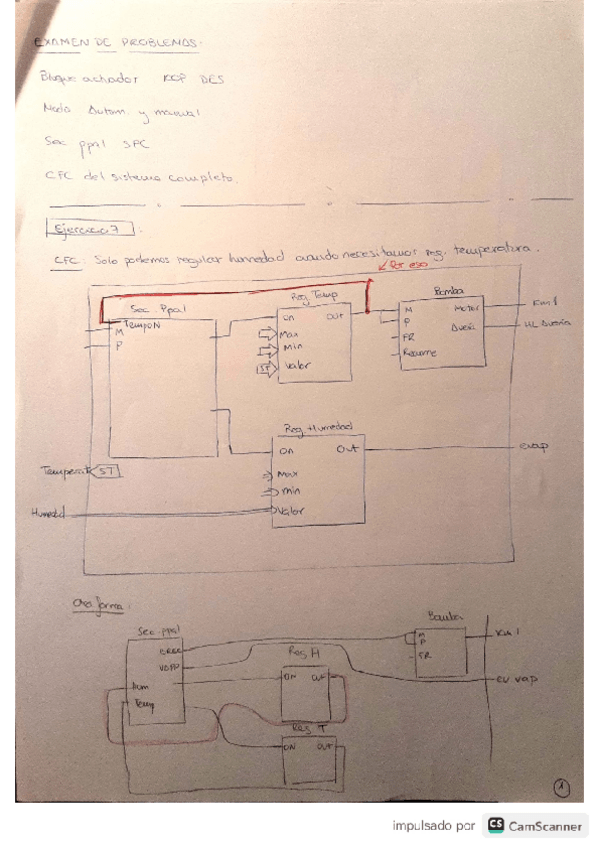 EXAMEN DE PROBLEMAS.
Bloque activador KOP DES
Modo Autom. y manual
Sec ppal SFC
CFC del sistema completo.
Ejercicio 7
CFC: Solo podemos regular humedad cuando necesitamos reg. temperatura.
Por eso
Sec. Ppal
TempoN
M
P
Reg Temp
ON OUT
Max
Min
Valor
ST
Bomba
M Motor
P Avería
FR
Rearme
KM1
HL Avería
Reg Humedad
ON Out
Max
min
Valor
evap
Temperat ST
Humedd
Otra forma:
Sec. ppal
Hum
Temp
Reg H
ON OUT
Reg T
ON OUT
Bomba
M
P
FR
KM1
EV vap
1
impulsado por CS CamScanner